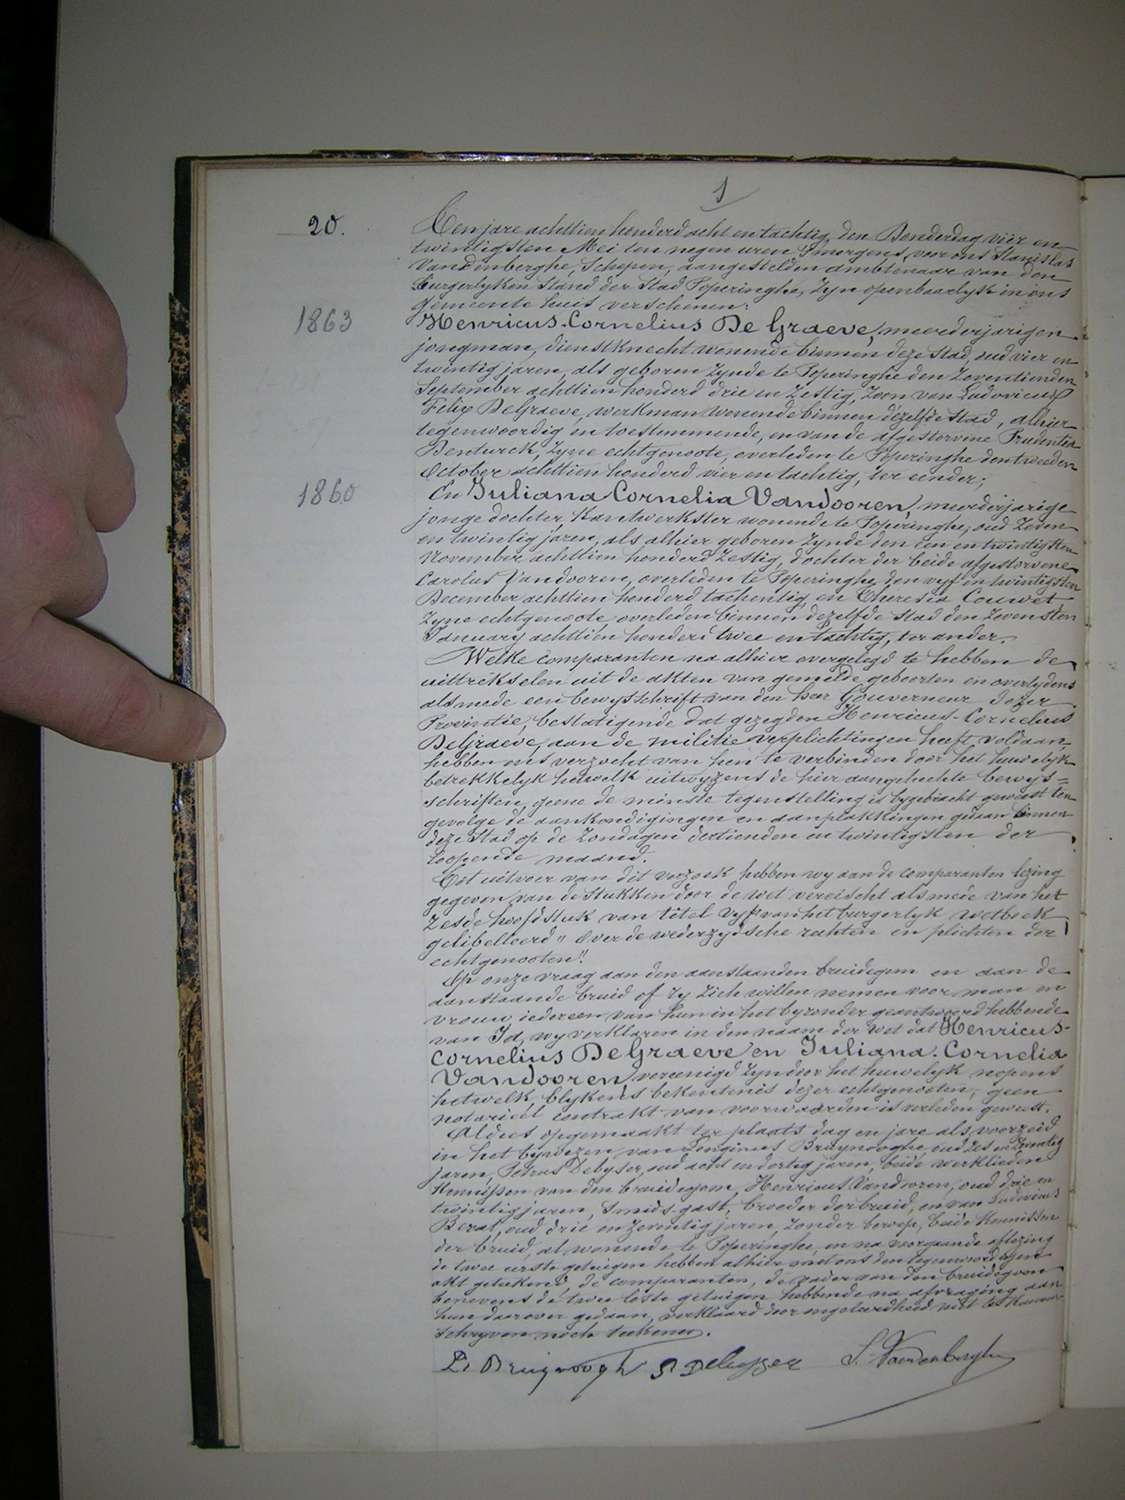 1
20.
Ten jare achttien honderd acht en tachtig, den Donderdag vier en
twintigsten Mei ten negen uren 's morgens, voor ons Stanislas
Vandenberghe, Schepen, aangestelden ambtenaar van den
burgerlyken stand der Stad Poperinghe, zyn openbaarlyk in ons
gemeente huis verschenen:
1863
Henricus-Cornelius De Graeve, meerderjarigen
jongman, dienstknecht wonende binnen deze stad, oud vier en
twintig jaren, als geboren zynde te Poperinghe den zeventienden
September achttien honderd drie en zestig, zoon van Ludovicus
Felix DeGraeve, werkman wonende binnen dezelfde stad, alhier
tegenwoordig en toestemmende, en van de afgestorvene Prudentia
zyne echtgenoote, overleden te Poperinghe den tweeden
October achttien honderd vier en tachtig, ter eender;
1860
En Juliana Cornelia Vandooren, meerderjarige
jonge dochter, kantwerkster wonende te Poperinghe, oud zeven
en twintig jaren, als alhier geboren zynde den een en twintigsten
November achttien honderd zestig, dochter der beide afgestorvene
Carolus Vandooren, overleden te Poperinghe den vyf en twintigsten
December achttien honderd tachentig, en Theresia Couwet
zyne echtgenoote overleden binnen dezelfde stad den zevensten
January achttien honderd twee en tachtig, ter ander.
Welke comparanten na alhier overgelegd te hebben de
uittrekselen uit de akten van gemelde geboorten en overlydens
alsmede een bewysschrift van den heer Gouverneur dezer
Provintie, bestatigende dat gezegden Henricus-Cornelius
DeGraeve, aan de militie verplichtingen heeft voldaan,
hebben ons verzocht van hen te verbinden door het huwelyk
betrekkelyk huwelk uitwyzens de hier aangehechte bewys=
schriften, geene de minste tegenstelling is bygebracht geweest ten
gevolge de aankondigingen en aanplakkingen gedaan binnen
deze stad op de Zondagen dertienden en twintigsten der
loopende maand.
Tot uitvoer van dit verzoek hebben wy aan de comparanten lezing
gegeven van de stukken door de wet vereischt alsmede van het
zesde hoofdstuk van titel vyf van het burgerlyk wetboek
gelibelleerd "Over de wederzydsche rechten en plichten der
echtgenooten".
Op onze vraag aan den aanstaanden bruidegom en aan de
aanstaande bruid of zy zich willen nemen voor man en
vrouw, iedereen van hun in het byzonder geantwoord hebbende
van Ja, wy verklaren in den naam der wet dat Henricus-
Cornelius DeGraeve en Juliana-Cornelia
Vandooren, vereenigd zyn door het huwelyk nopens
hetwelk, blykens bekentenis dezer echtgenooten, geen
notariëel contrakt van voorwaarden is verleden geweest.
Aldus opgemaakt ter plaats dag en jare als voorzeid
in het bywezen van Longinus Bruynooghe, oud zes en twintig
jaren, Petrus Debyser, oud acht en dertig jaren, beide werklieden
kennissen van den bruidegom, Henricus Vandooren, oud drie en
twintig jaren, smids-gast, broeder der bruid, en van Ludovicus
oud drie en zeventig jaren, zonder beroep, beide kennissen
der bruid, al wonende te Poperinghe, en na voorgaande aflezing
de twee eerste getuigen hebben alhier met ons den tegenwoordigen
akt geteekend de comparanten, de vader van den bruidegom
benevens de twee leste getuigen hebbende na afvraging aan
hun daarover gedaan, verklaard door ongeleerdheid niet te kunnen
schryven noch teekenen.
L. Bruynoogh P Debyser S. Vandenberghe